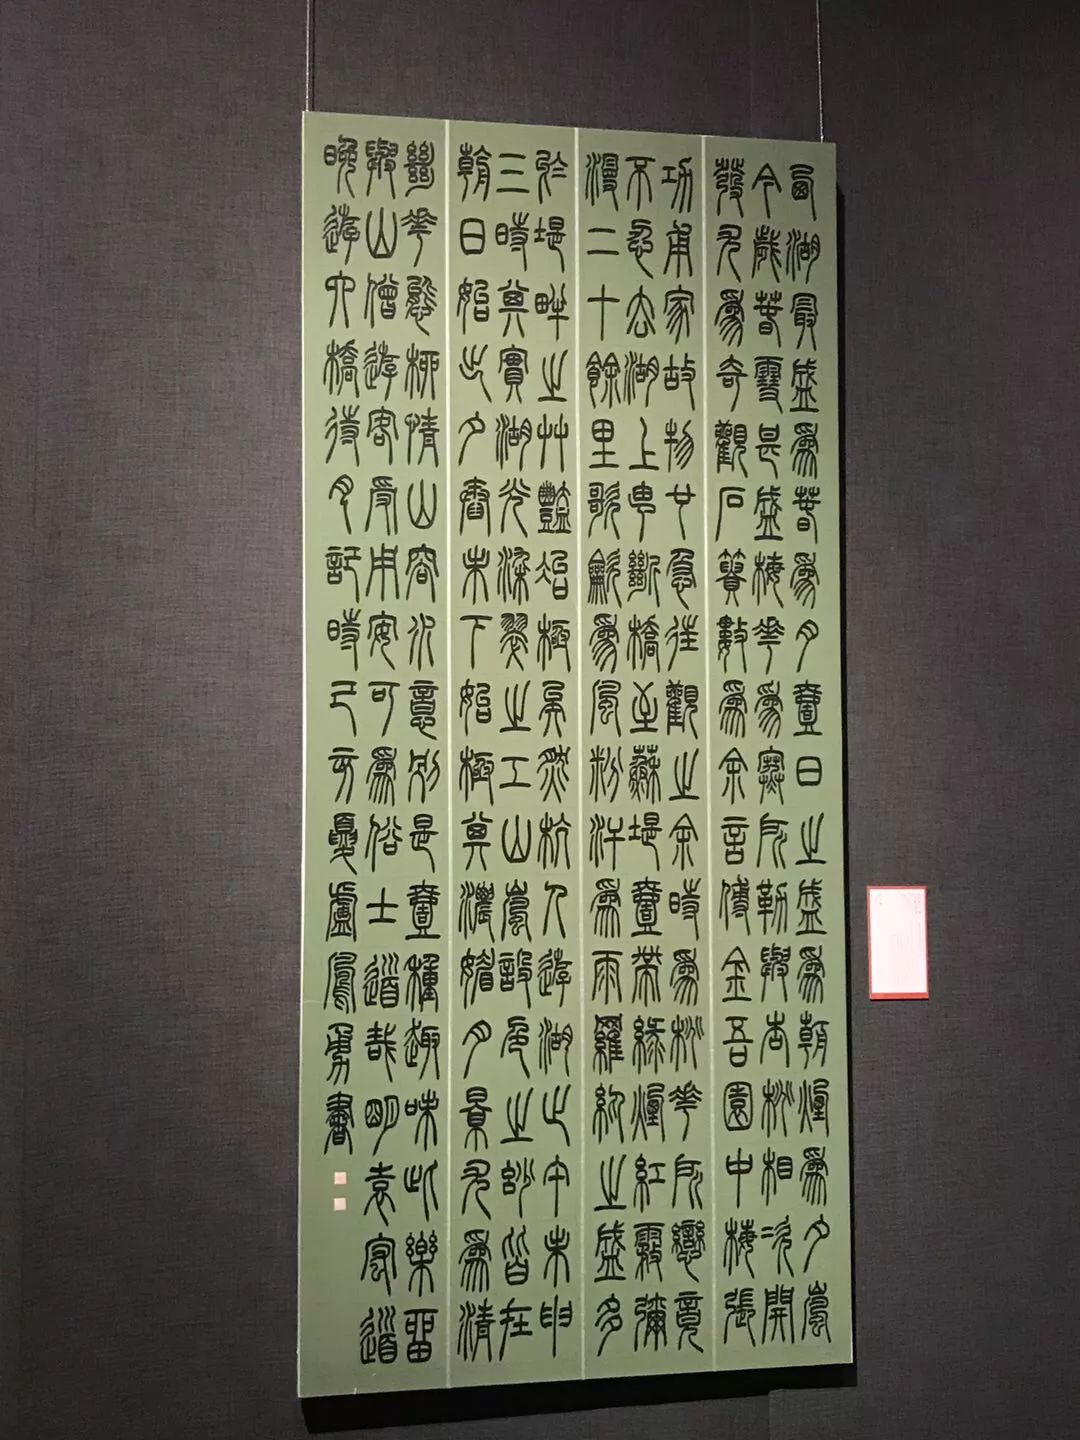 西湖最盛為春為月壹日之盛為朝煙為夕嵐
今歲春雪甚盛梅花為寒所勒與杏桃相次開
發尤為奇觀石簣數為余言傅金吾園中梅張
功甫家故物也急往觀之余時為桃花所戀竟
不忍去湖上由斷橋至蘇堤壹帶綠煙紅霧彌
漫二十餘里歌龡為風粉汗為雨羅紈之盛多
於堤畔之艸豔冶極矣然杭人遊湖止午未申
三時其實湖光染翠之工山嵐設色之妙皆在
朝日始出夕舂未下始極其濃媚月景尤為清
幽花態柳情山容水意別是壹種趣味此樂留
與山僧遊客受用安可為俗士道哉明袁宏道
晚遊六橋待月記時己亥夏盧鳳勇書